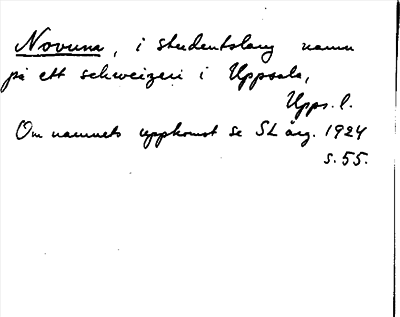 Novuna, i studentslang namn
på ett schweizeri i Uppsala,
Upps. l.
Om namnets uppkomst se SL årg. 1924
s. 55.